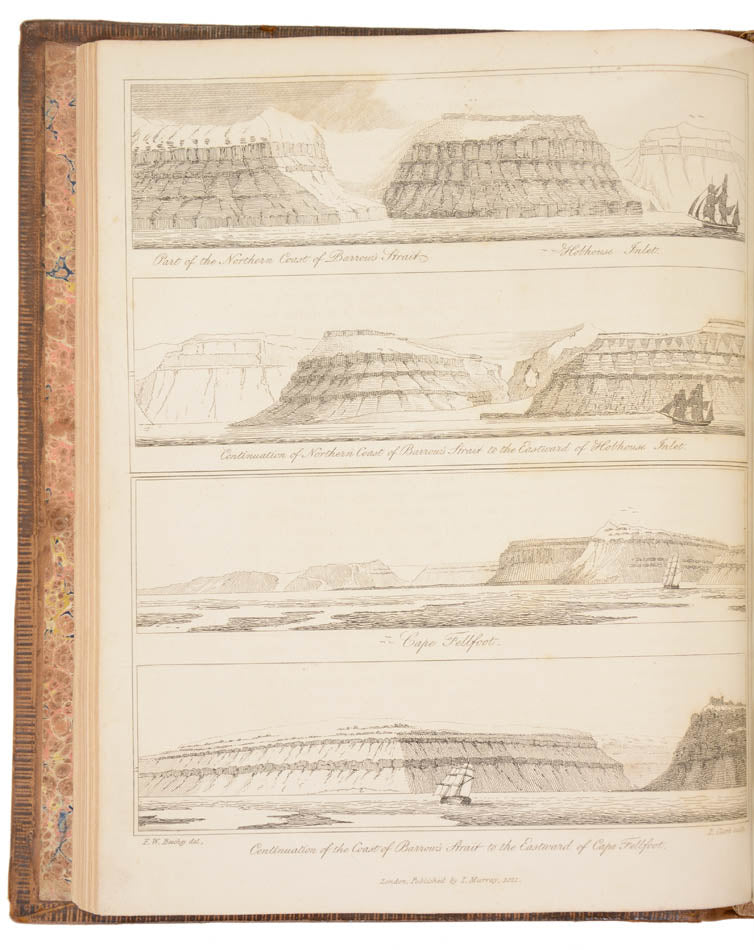 Part of the Northern Coast of Barrow's Strait
Hobhouse Inlet.
Continuation of Northern Coast of Barrow's Strait to the Eastward of Hobhouse Inlet.
Cape Fellfoot.
F. W. Beechy del.,
Continuation of the Coast of Barrow's Strait to the Eastward of Cape Fellfoot.
London, Published by I. Murray,